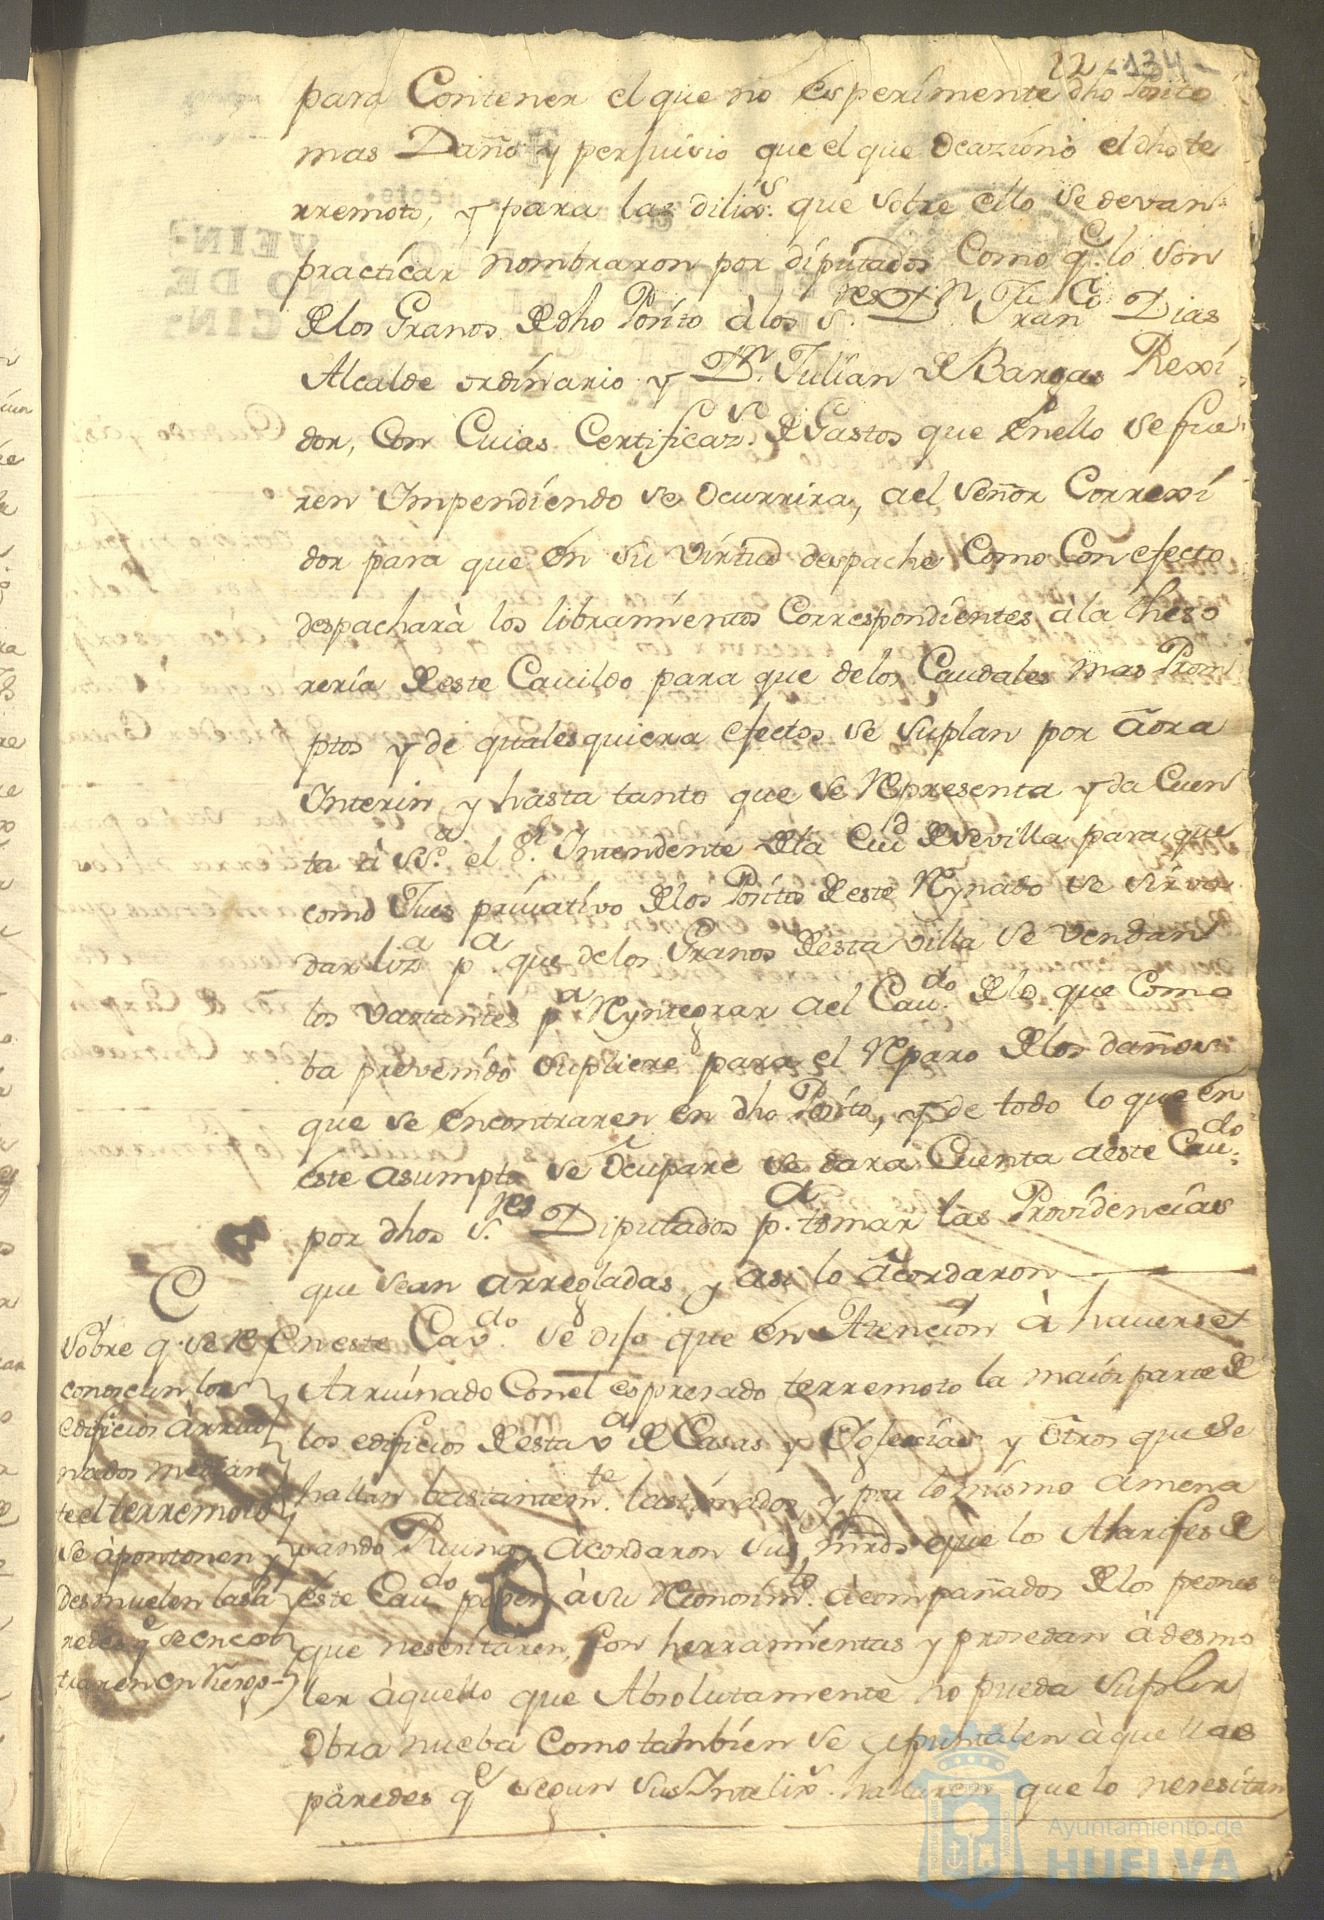 22 - 134 -
para Contener el que no esperimente dho Posito
mas Daño y perjuivio que el que Ocazionò el dho te
rremoto, y para las dilixs. que sobre ello se devan
practicar nombraron por diputados Como qe. lo son
de los Granos de dho Posito à los Sres. Dn. Franco Dias
Alcalde ordinario y Dn. Julian de Bargas Rexi
dor, Con Cuias Certificazs. de Gastos que en ello se fue
ren Impendiendo se Ocurrira, a el señor Correxi
dor para que en su virtud despache Como Con efecto
despacharà los libramientos Correspondientes a la theso
reria de este Cauildo para que de los Caudales mas Prom
ptos y de quales quiera efectos se suplan por aora
Interin y hasta tanto que se Representa y da Cuen
ta à SSa. el Sr. Intendente de la Ciud de Sevilla para que
como Jues privativo de los Positos de este Reynado se sirva
dar liza pa que de los Granos de esta villa se vendan
los vastantes pa Reyntegrar a el Caudo. de lo que Como
ba prevenido supliere para el Reparo de los daños
que se encontraren en dho Posito, y de todo lo que en
este asumpto se Ocupare se dara Cuenta a este Caudo.
por dhos Sres. Diputados pa. tomar las Providencias
que sean arregladas y asi lo acordaron
C
Sobre q. se re
conoscan los
edificios arrui
nados median
te el terremoto
se apontonen y
desmuelen las pa
redes qe se encon
traren en
En este Cavdo. se dijo que en Atencion à haverse
Arruinado Con el espresado terremoto la maior parte de
los edificios de esta va de Casas y Iglecias y Otros que se
hallan bastantemte. lastimados y por lo mismo amena
sando Ruina, acordaron sus mrds que lo Alarifes de
este Caudo pasen à su Reconosimto. acompañados de los peones
que nesesitaren, Con herramientas y prosedan à desmo
ler àquello que Absolutamente no pueda suplir
Obra nueba Como tambien se apuntalen àquellas
paredes qe segun sus Intelixs. hallaren que lo nesesitan
Ayuntamiento de
HUELVA